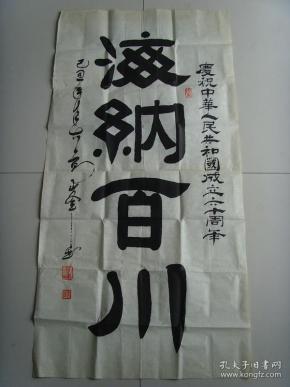 慶祝中華人民共和國成立六十周年
海納百川
己丑年
孔夫子旧书网
www.kongfz.com